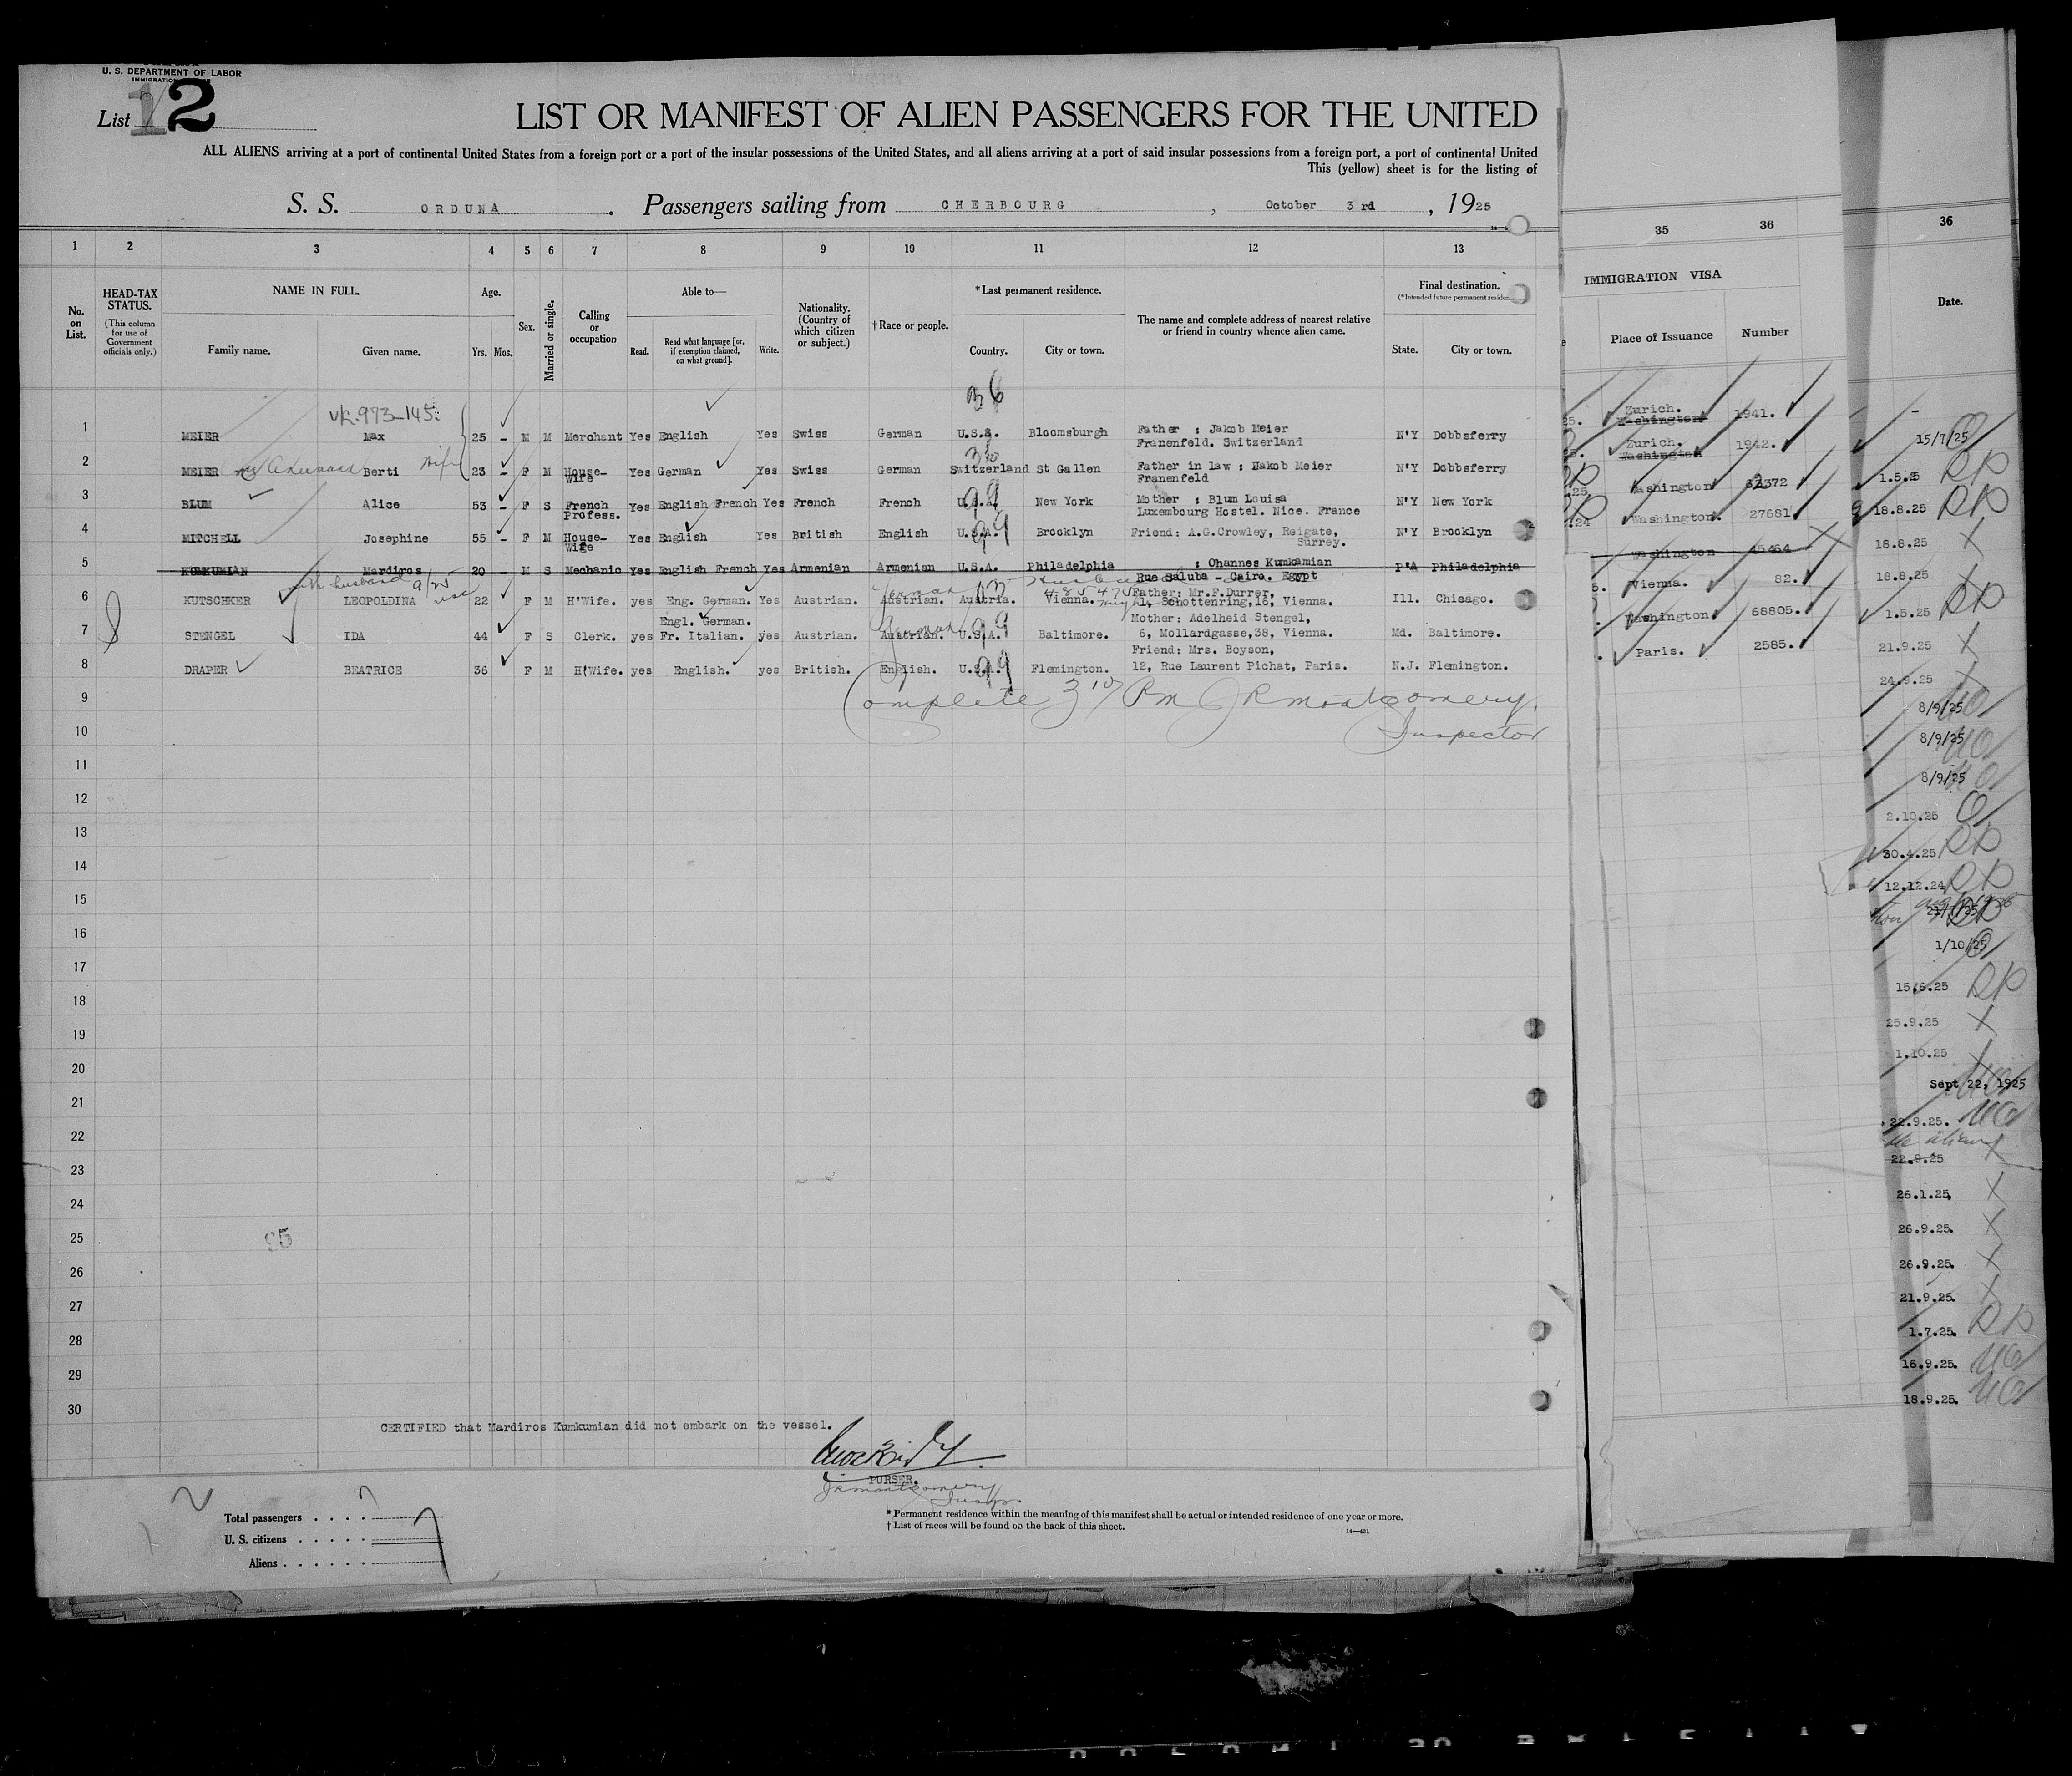 U. S. DEPARTMENT OF LABOR
List 2
LIST OR MANIFEST OF ALIEN PASSENGERS FOR THE UNITED
ALL ALIENS arriving at a port of continental United States from a foreign port or a port of the insular possessions of the United States, and all aliens arriving at a port of said insular possessions from a foreign port, a port of continental United
This (yellow) sheet is for the listing of
S. S. ORDUNA. Passengers sailing from CHERBOURG, October 3 rd, 1925
1 2 3 4 5 6 7 8 9 10 11 12 13
No. on List.
HEAD-TAX STATUS.
(This column for use of Government officials only.)
NAME IN FULL.
Family name. Given name.
Age.
Yrs. Mos.
Sex.
Married or single.
Calling or occupation
Able to—
Read. Read what language [or, if exemption claimed, on what ground]. Write.
Nationality. (Country of which citizen or subject.)
† Race or people.
* Last permanent residence.
Country. City or town.
The name and complete address of nearest relative or friend in country whence alien came.
Final destination.
(*Intended future permanent residence)
State. City or town.
36
1 MEIER Max 25 - M M Merchant Yes English Yes Swiss German U.S.A. Bloomsburgh Father : Jakob Meier Franenfeld. Switzerland N'Y Dobbsferry
2 MEIER Berti wife 23 - F M House-Wife Yes German Yes Swiss German Switzerland St Gallen Father in law : Jakob Meier Franenfeld N'Y Dobbsferry
3 BLUM Alice 53 - F S French Profess. Yes English French Yes French French U.S.A. New York Mother : Blum Louisa Luxembourg Hostel. Nice. France N'Y New York
4 MITCHELL Josephine 55 - F M House-Wife Yes English Yes British English U.S.A. Brooklyn Friend: A.G.Crowley, Reigate, Surrey. N'Y Brooklyn
5 KUMKUMIAN Mardiros 20 - M S Mechanic Yes English French Yes Armenian Armenian U.S.A. Philadelphia : Ohannes Kumkamian Rue Saluba - Cairo. Egypt P'A Philadelphia
6 KUTSCHKER LEOPOLDINA 22 F M H'Wife. yes Eng. German. Yes Austrian. Austrian. German Austria. Vienna. Father: Mr.F.Durrer, 1, Schottenring,16, Vienna. Ill. Chicago.
7 STENGEL IDA 44 F S Clerk. yes Engl. German. Fr. Italian. yes Austrian. Austrian. German U.S.A. Baltimore. Mother: Adelheid Stengel, 6, Mollardgasse,38, Vienna. Md. Baltimore.
8 DRAPER BEATRICE 36 F M H'Wife. yes English. yes British. English. U.S.A. Flemington. Friend: Mrs. Boyson, 12, Rue Laurent Pichat, Paris. N.J. Flemington.
9 Complete 3 10/ PM J R Montgomery,
10 Inspector
11
12
13
14
15
16
17
18
19
20
21
22
23
24
25
26
27
28
29
30
CERTIFIED that Mardiros Kumkumian did not embark on the vessel.
PURSER.
J R Montgomery
Insp.
Total passengers
U. S. citizens
Aliens
* Permanent residence within the meaning of this manifest shall be actual or intended residence of one year or more.
† List of races will be found on the back of this sheet.
14—431
35 36
IMMIGRATION VISA
Place of Issuance Number
Zurich. Washington 1941.
Zurich. Washington 1942.
Washington
Washington 27681
Washington
Vienna. 82.
Washington 68805.
Paris. 2585.
36
Date.
15/7/25
1.5.25
18.8.25
18.8.25
18.8.25
1.5.25
21.9.25
24.9.25
8/9/25
8/9/25
8/9/25
2.10.25
30.4.25
12.12.24
1/10/25
15.6.25
25.9.25
1.10.25
Sept 22, 1925
22.9.25.
22.9.25
26.1.25,
26.9.25.
26.9.25.
21.9.25.
1.7.25.
16.9.25.
18.9.25.